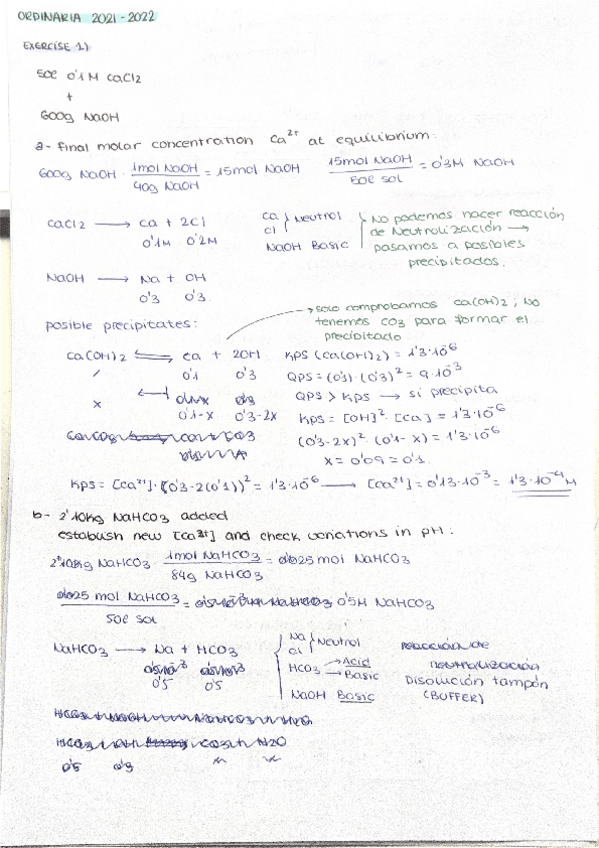 ORDINARIA 2021-2022
EXERCISE 1)
50l 0'1M CaCl2
+
600g NaOH
a- Final molar concentration Ca²⁺ at equilibrium:
600g NaOH · 1mol NaOH / 40g NaOH = 15mol NaOH 15mol NaOH / 50l sol = 0'3M NaOH
CaCl2 ⟶ Ca + 2Cl
0'1M 0'2M
Ca Cl } Neutrol
NaOH Basic
No podemos hacer reacción
de Neutrolización ⟶
pasamos a posibles
precipitados.
NaOH ⟶ Na + OH
0'3 0'3
posible precipitates:
→ solo comprobamos Ca(OH)2, No
tenemos CO3 para formar el
precipitado
Ca(OH)2 ⇌ Ca + 2OH KPS (Ca(OH)2) = 1'3·10⁻⁶
0'1 0'3 QPS = (0'1)·(0'3)² = 9·10⁻³
QPS > KPS ⟶ si precipita
x 0'1-x 0'3-2x KPS = [OH]²·[Ca] = 1'3·10⁻⁶
(0'3-2x)²·(0'1-x) = 1'3·10⁻⁶
x = 0'09 = 0'1.
KPS = [Ca²⁺]·(0'3-2(0'1))² = 1'3·10⁻⁶ ⟶ [Ca²⁺] = 0'13·10⁻³ = 1'3·10⁻⁴ M
b- 2'10Kg NaHCO3 added
establish new [Ca²⁺] and check variations in pH:
NaHCO3 · 1mol NaHCO3 / 84g NaHCO3 = 25 mol NaHCO3
25 mol NaHCO3 / 50l sol = 0'5M NaHCO3
NaHCO3 ⟶ Na + HCO3
0'5 0'5
Na Cl } Neutrol
HCO3 → Acid
→ Basic
NaOH Basic
reacción de
neutralización
Disolución tampón
(BUFFER)
0'5 0'3